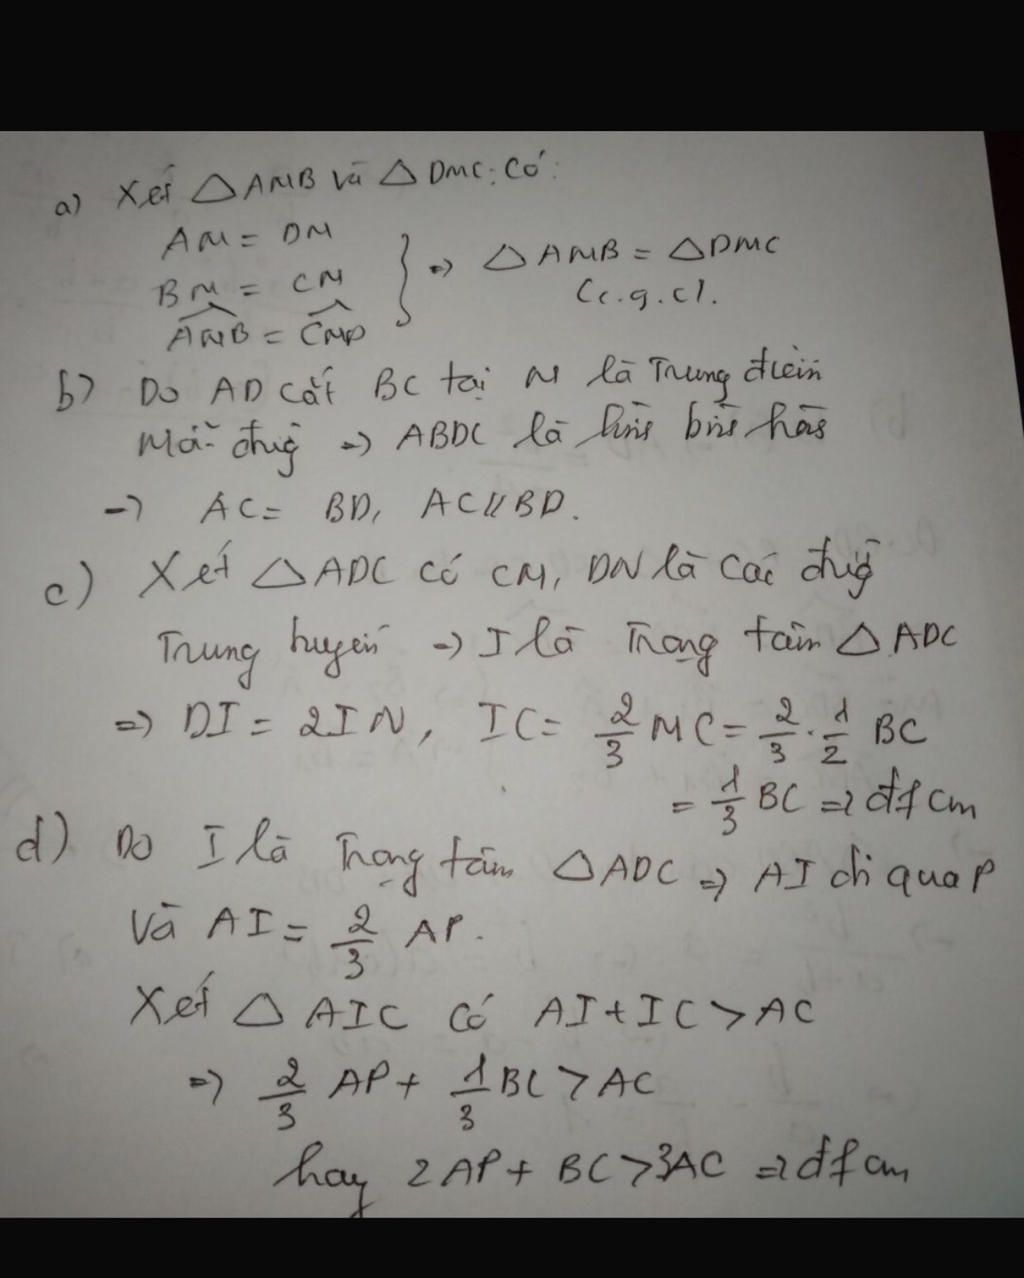 a) Xét △AMB và △DMC: Có:
AM = DM
BM = CM
AMB = CMD
} => △AMB = △DMC
(c.g.c).
b) Do AD cắt BC tại M là Trung điểm
Mỗi đường => ABDC là hình bình hành
-> AC = BD, AC // BD.
c) Xét △ADC có CM, DN là các đường
Trung tuyến => I là Trọng tâm △ADC
=> DI = 2IN, IC = 2/3 MC = 2/3 . 1/2 BC
= 1/3 BC => đfcm
d) Do I là Trọng tâm △ADC => AI đi qua P
Và AI = 2/3 AP.
Xét △AIC có AI + IC > AC
=> 2/3 AP + 1/3 BC > AC
hay 2AP + BC > 3AC => đfcm